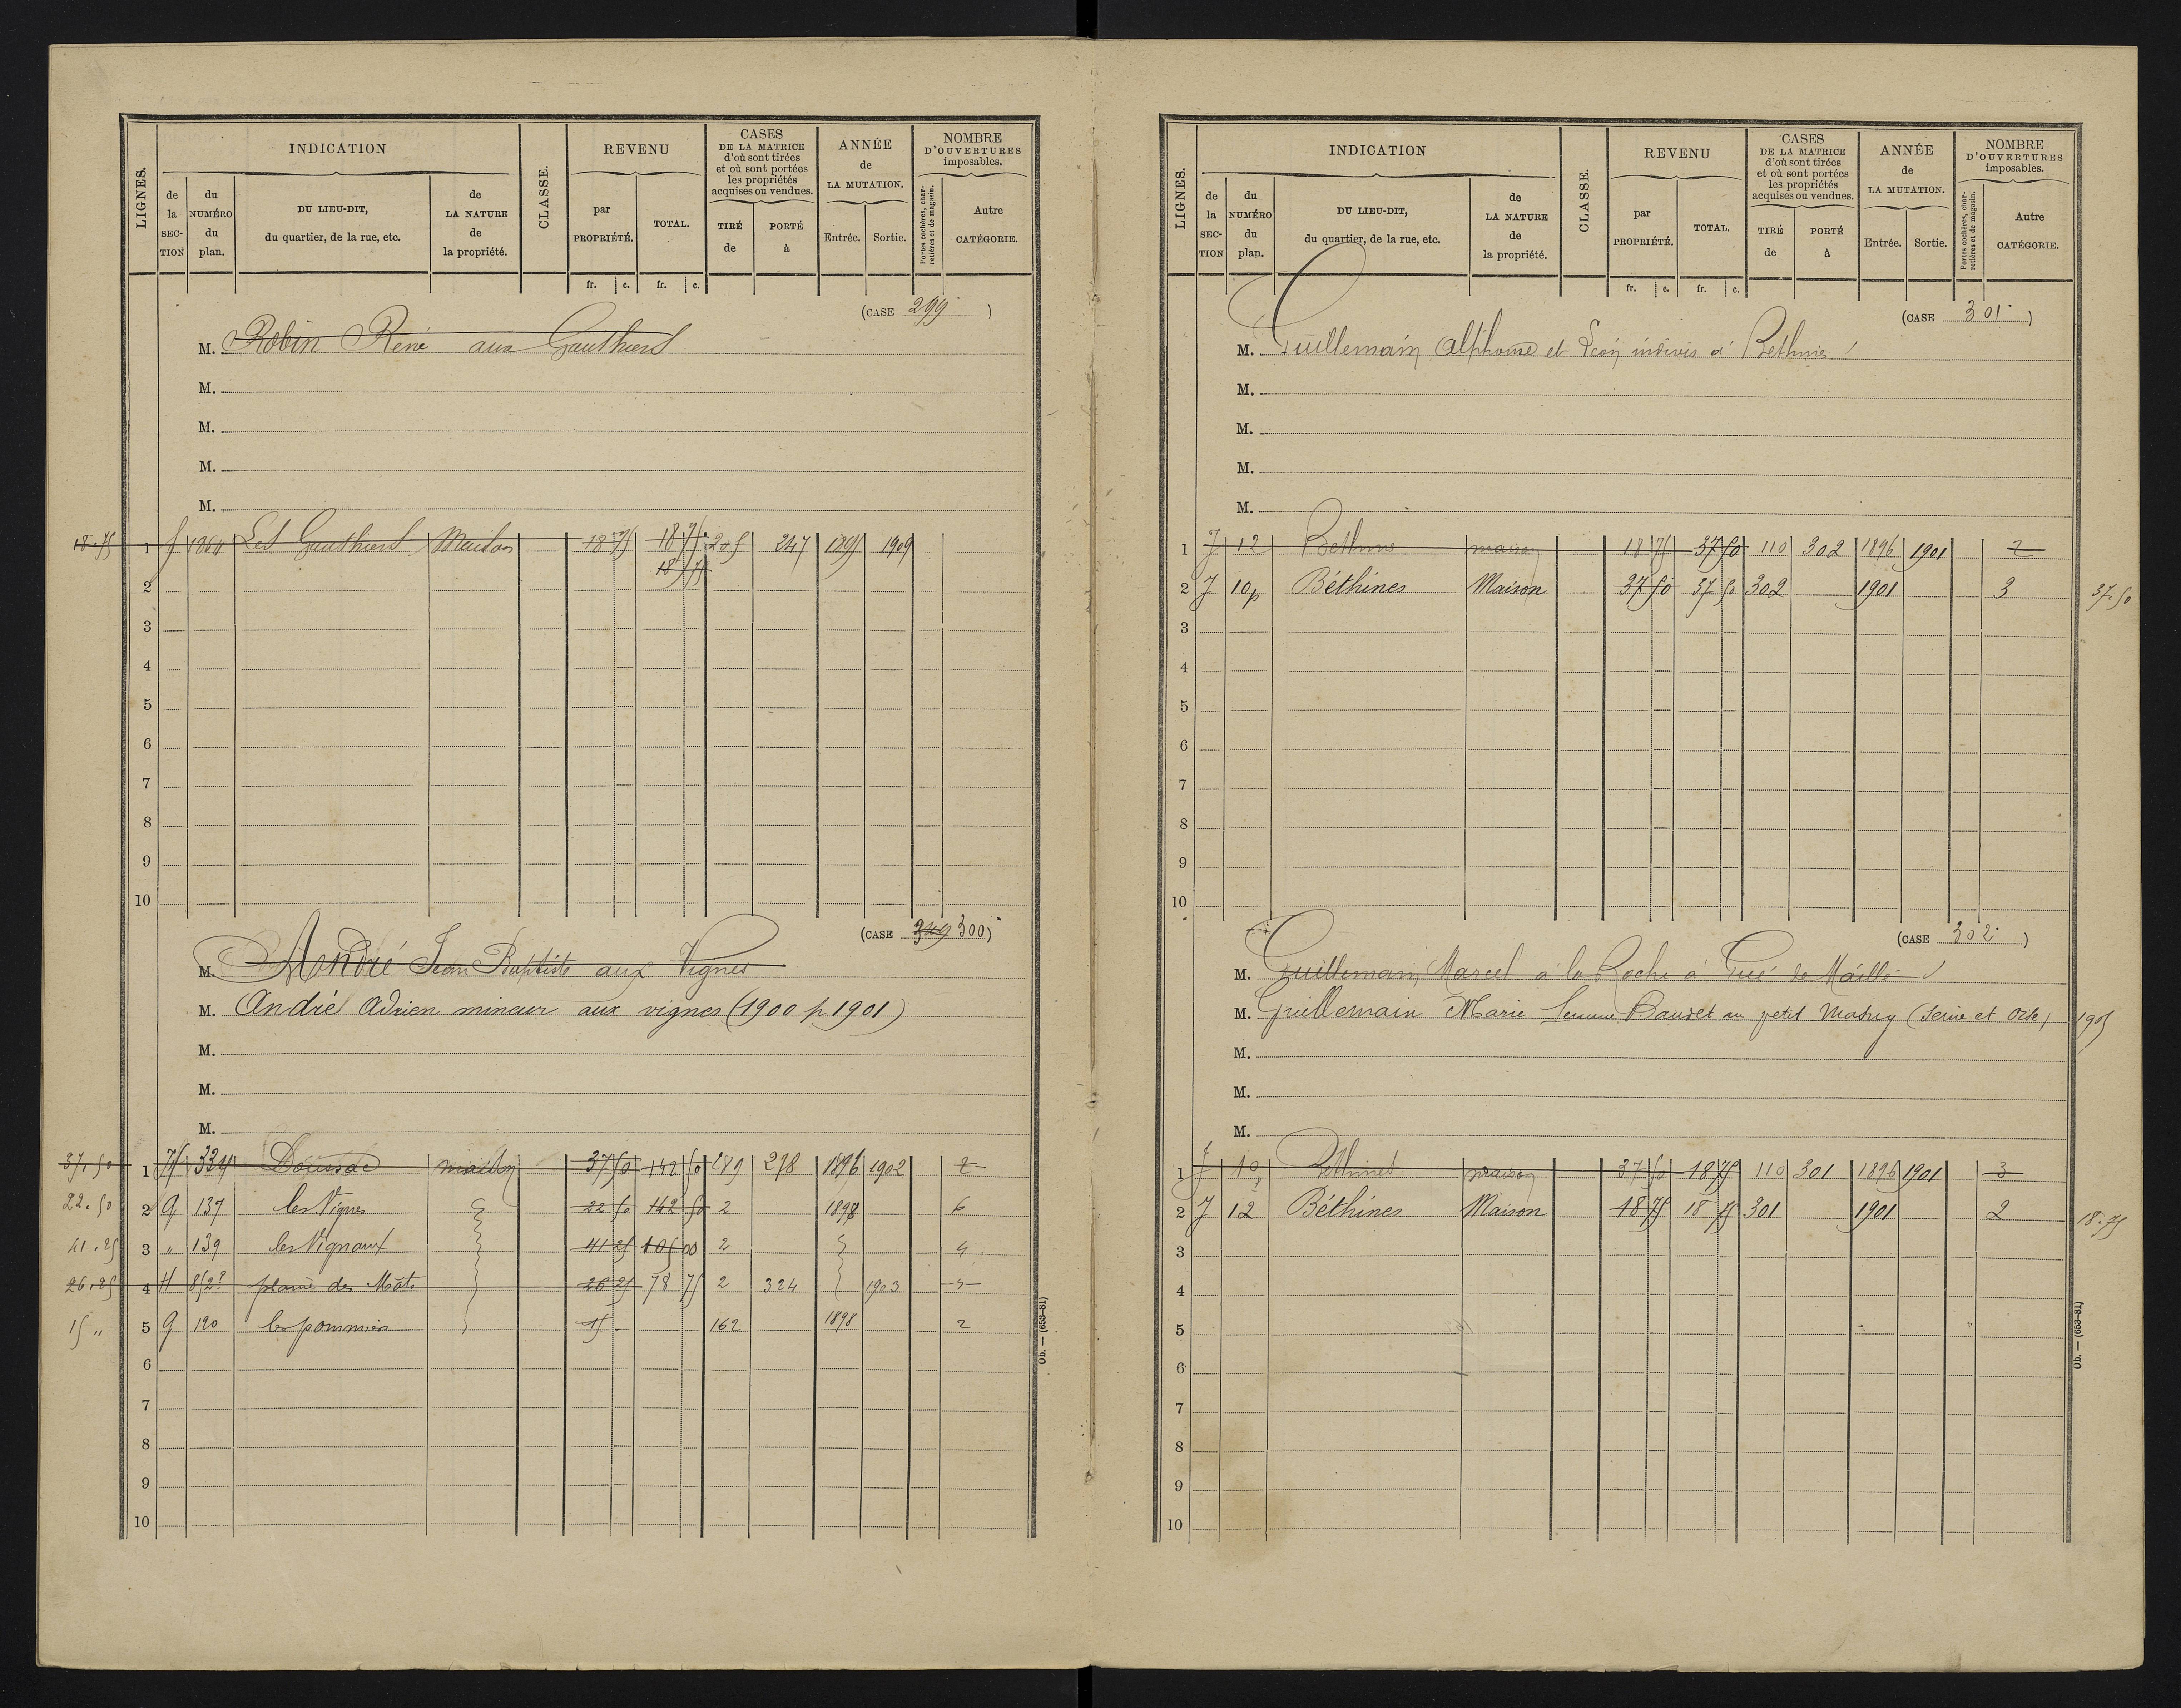 LIGNES. INDICATION CLASSE. REVENU CASES DE LA MATRICE d'où sont tirées et où sont portées les propriétés acquises ou vendues. ANNÉE de LA MUTATION. NOMBRE D'OUVERTURES imposables.
de la SECTION du NUMÉRO du plan. DU LIEU-DIT, du quartier, de la rue, etc. de LA NATURE de la propriété. par PROPRIÉTÉ. TOTAL. TIRÉ de PORTÉ à Entrée. Sortie. Portes cochères, charretières et de magasin. Autre CATÉGORIE.
fr. c. fr. c.
(CASE 299)
M. Robin René aux Gauthiers
M.
M.
M.
M.
18.75 1 Les Gauthiers Maison 18 75 18 75 205 247 1909
18 75
2
3
4
5
6
7
8
9
10
(CASE 300)
M. André Jean Baptiste aux Vignes
M. André Adrien mineur aux vignes (1900 p 1901)
M.
M.
M.
37.50 1 334 maison 37 50 142 50 289 278 1896 1902 2
22.50 2 G 137 les Vignes 22 50 142 50 2 1898 6
41.25 3 " 139 les Vignaux 41 25 105 00 2 4
26.25 4 H 852 plaine des Mâts 26 25 78 75 2 324 1903
15 " 5 G 120 les pommiers 15 162 1898 2
6
7
8
9
10
Ob. — (653-81)
LIGNES. INDICATION CLASSE. REVENU CASES DE LA MATRICE d'où sont tirées et où sont portées les propriétés acquises ou vendues. ANNÉE de LA MUTATION. NOMBRE D'OUVERTURES imposables.
de la SECTION du NUMÉRO du plan. DU LIEU-DIT, du quartier, de la rue, etc. de LA NATURE de la propriété. par PROPRIÉTÉ. TOTAL. TIRÉ de PORTÉ à Entrée. Sortie. Portes cochères, charretières et de magasin. Autre CATÉGORIE.
fr. c. fr. c.
(CASE 301)
M. Guillemain Alphonse et Léon indivis à Bethines
M.
M.
M.
M.
1 J 12 Bethines maison 18 75 37 50 110 302 1896 1901 2
2 J 10p Béthines Maison 37 50 37 50 302 1901 3 37.50
3
4
5
6
7
8
9
10
(CASE 302)
M. Guillemain Marcel à la Roche à Gué de Maillé
M. Guillemain Marie femme Baudet au petit (Seine et Oise) 1905
M.
M.
M.
1 J 10p Bethines maison 37 50 18 75 110 301 1896 1901 3
2 J 12 Béthines Maison 18 75 18 75 301 1901 2 18.75
3
4
5
6
7
8
9
10
Ob. — (653-81)